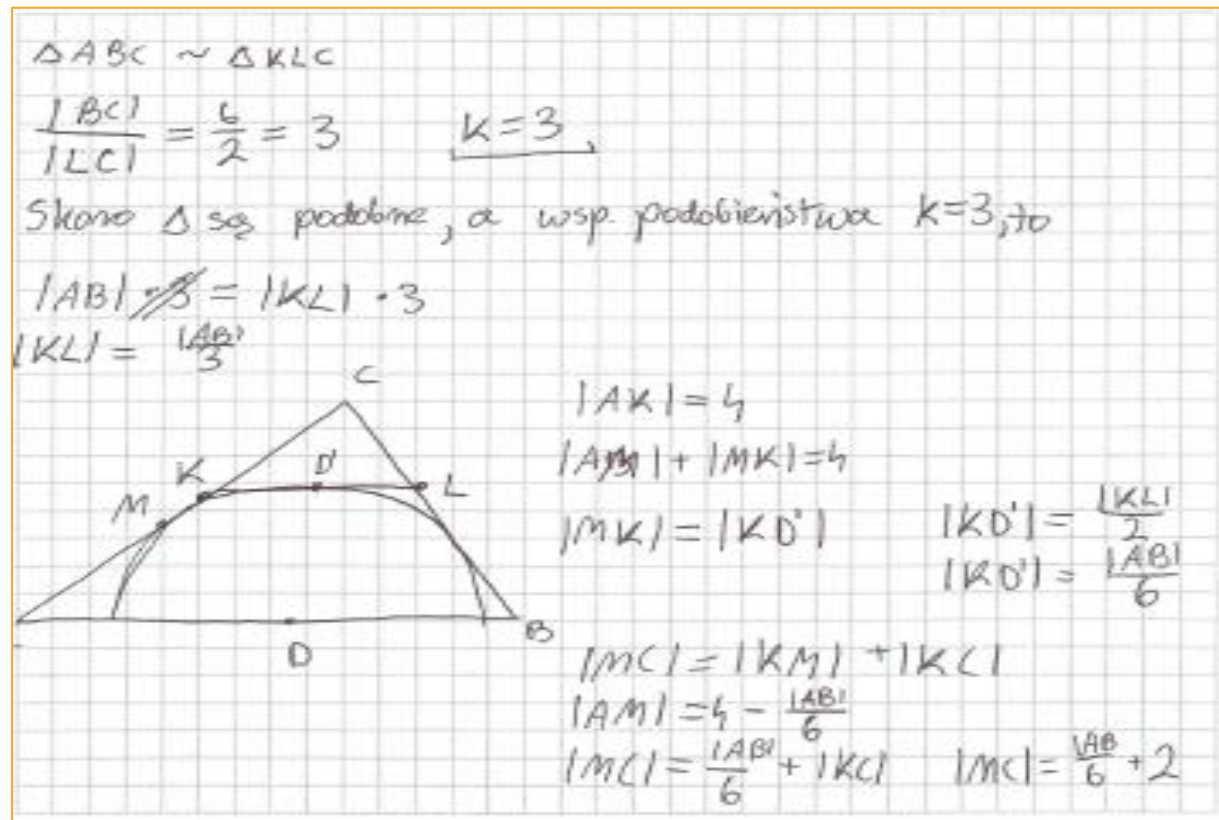 △ABC ~ △KLC
|BC|/|LC| = 6/2 = 3 K=3,
Skoro △ są podobne, a wsp. podobieństwa K=3, to
|AB| = |KL| · 3
|KL| = |AB|/3
C
K D' L
M
D B
|AK| = 4
|AM| + |MK| = 4
|MK| = |KD'| |KD'| = |KL|/2
|KD'| = |AB|/6
|MC| = |KM| + |KC|
|AM| = 4 - |AB|/6
|MC| = |AB|/6 + |KC| |MC| = |AB/6 + 2